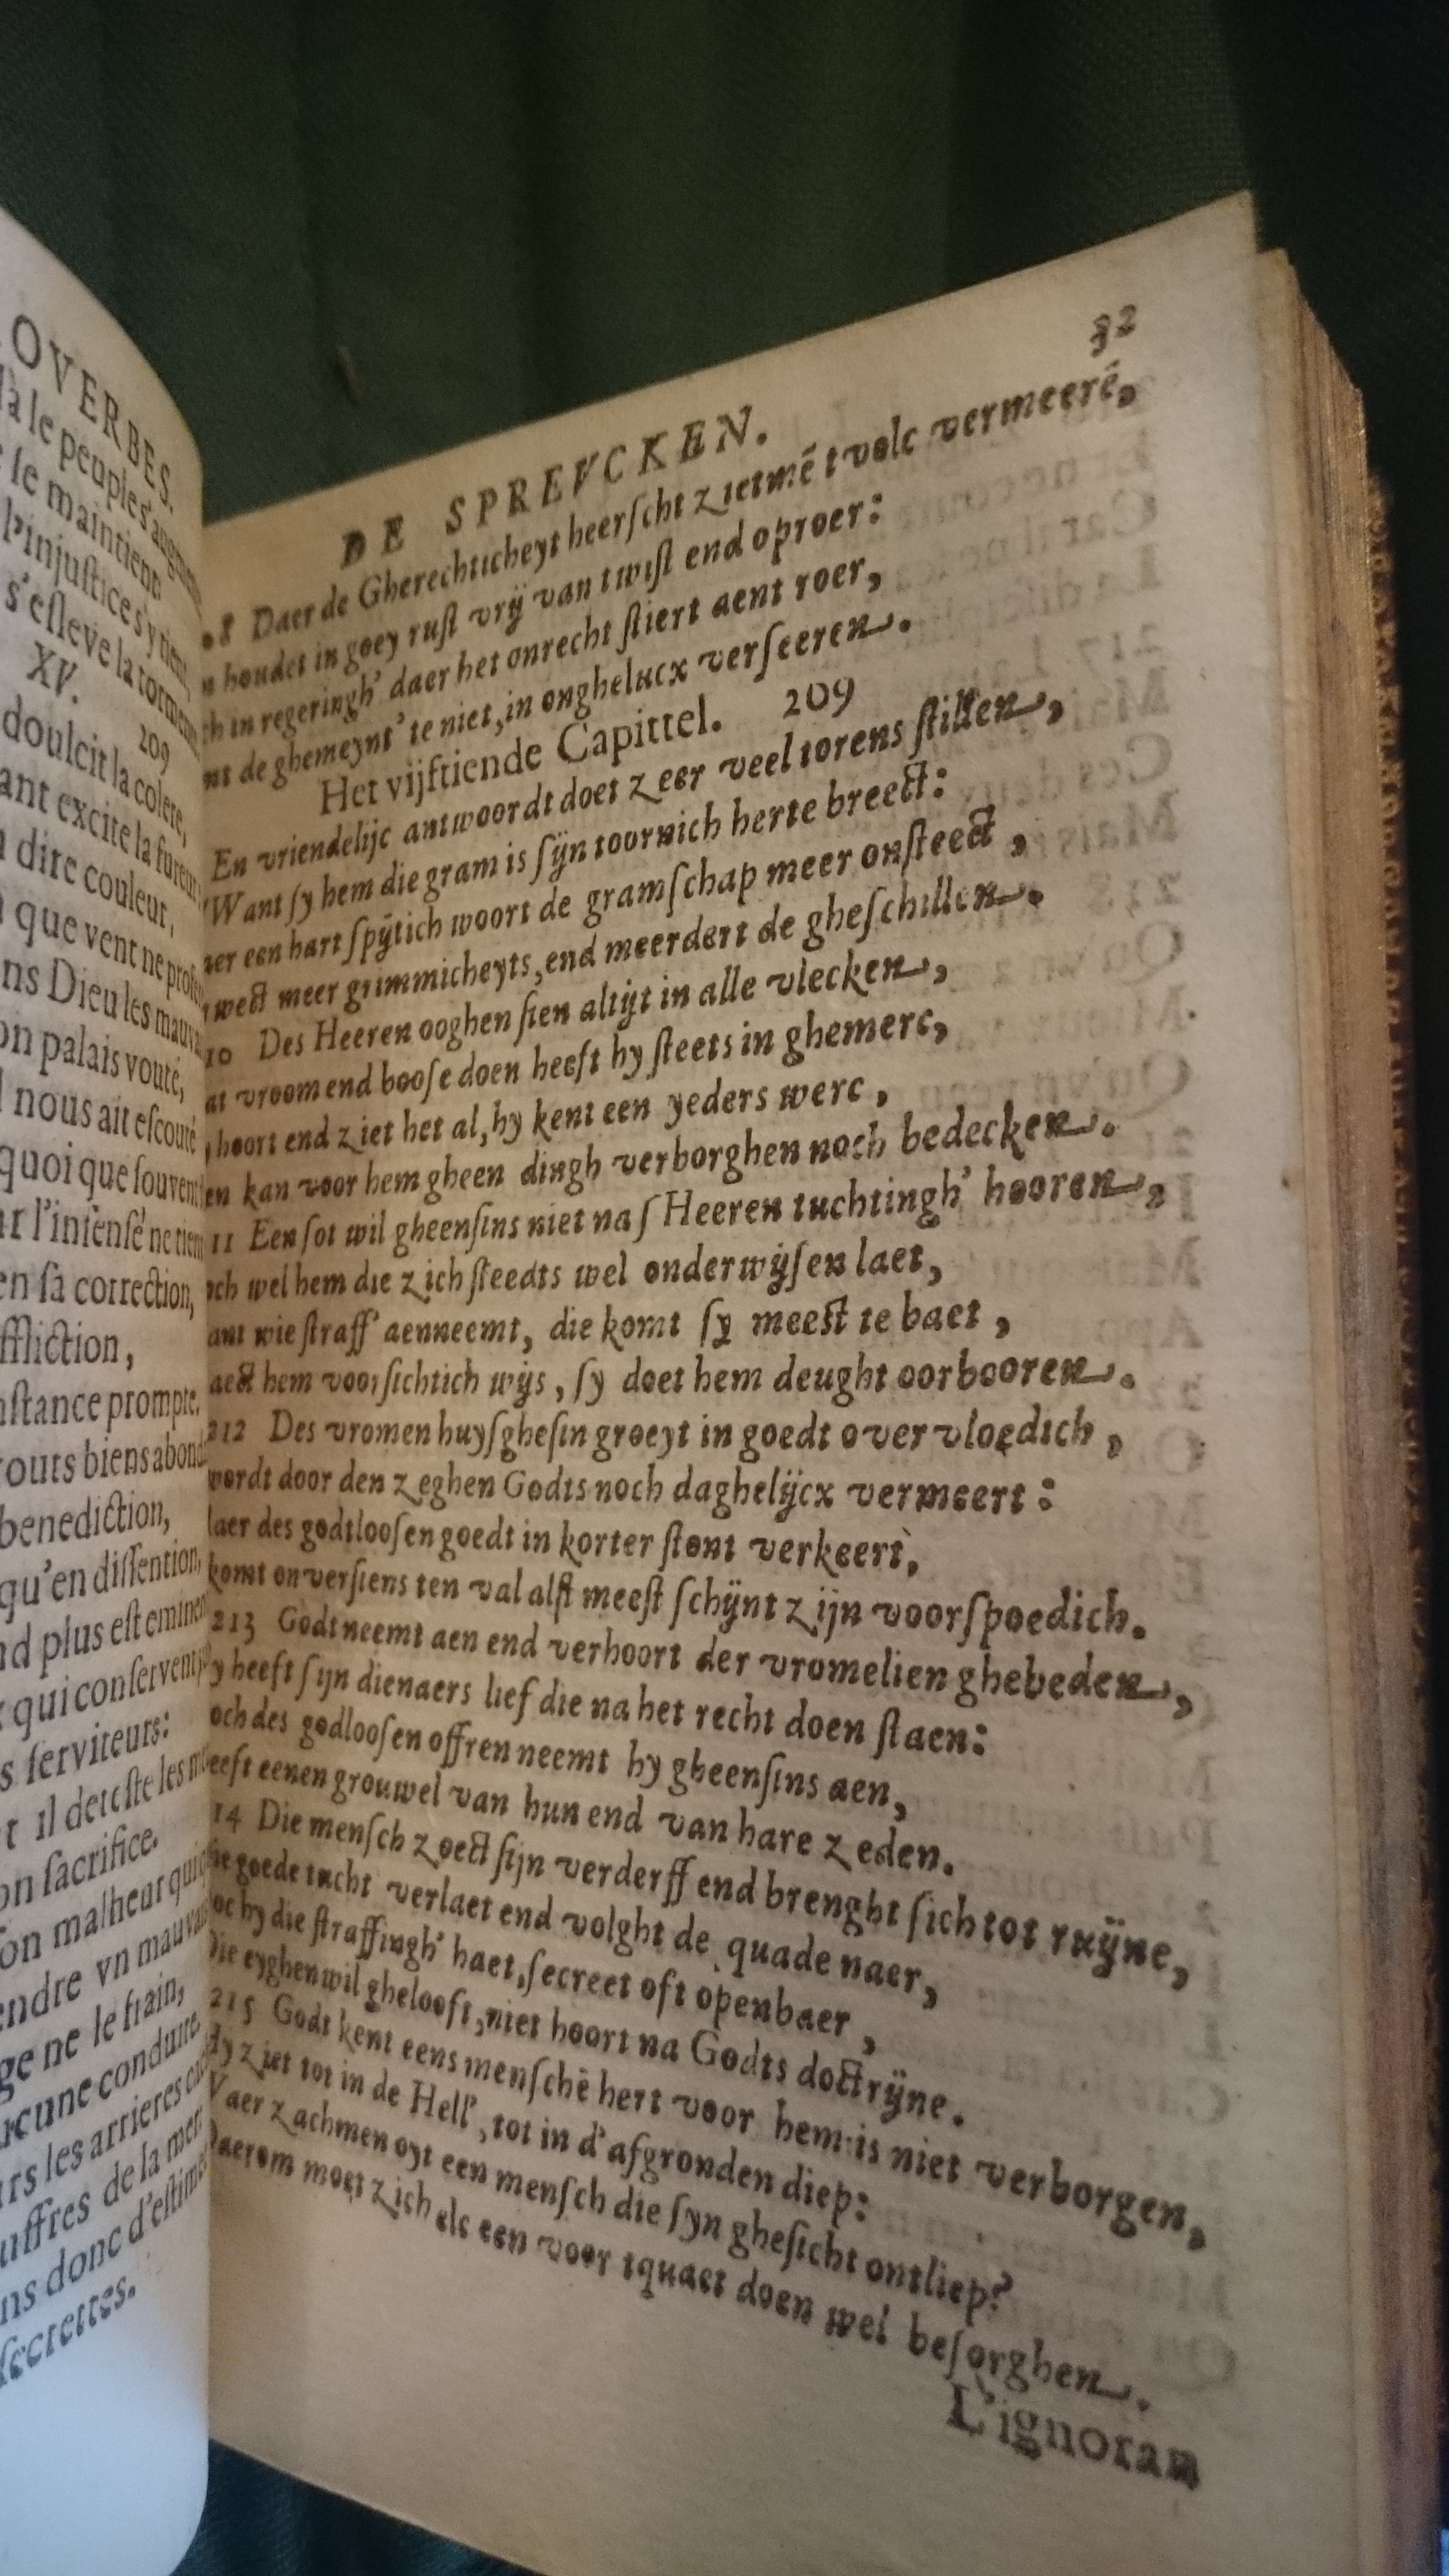 OVERBES.
là le peuple s'augm
le maintient.
l'injustice s'y tient,
s'esleve la tourmen
XV. 209
doulcit la colere,
ant excite la fureur
dire couleur,
que vent ne profe
ns Dieu les mauva
on palais vouté,
l nous ait escouté
quoi que souvent
r l'insensé ne tien
en sa correction,
ffliction,
nstance prompte.
touts biens abond
benediction,
qu'en dissention,
nd plus est eminen
qui conservent
s serviteurs:
t il deteste les m
on sacrifice.
son malheur qui
endre vn mauva
ge ne le frain,
ucune conduite.
urs les arrieres
uffres de la mer
ns donc d'estime
secrettes.
DE SPREVCKEN. 32
8 Daer de Gherechticheyt heerſcht zietmē t volc vermeerē,
n houdet in goey ruſt vrÿ van twiſt end oproer:
ch in regeringh' daer het onrecht ſtiert aent roer,
nt de ghemeynt' te niet, in onghelucx verſeeren.
Het vijftiende Capittel. 209
En vriendelijc antwoordt doet zeer veel torens ſtillen,
Want ſy hem die gram is ſÿn toornich herte breect:
er een hart ſpÿtich woort de gramſchap meer onſteect,
wect meer grimmicheyts, end meerdert de gheſchillen.
10 Des Heeren ooghen ſien altÿt in alle vlecken,
at vroom end booſe doen heeft hy ſteets in ghemerc,
hoort end ziet het al, hy kent een yeders werc,
en kan voor hem gheen dingh verborghen noch bedecken.
11 Een ſot wil gheenſins niet na ſ Heeren tuchtingh' hooren,
och wel hem die zich ſteedts wel onderwÿſen laet,
ant wie ſtraff' aenneemt, die komt ſy meest te baet,
aect hem voorſichtich wÿs, ſy doet hem deught oorbooren.
212 Des vromen huyſgheſin groeyt in goedt overvloedich,
wordt door den zeghen Godts noch daghelÿcx vermeert:
laer des godtlooſen goedt in korter ſtont verkeert,
komt onverſiens ten val alſt meeſt ſchÿnt zijn voorſpoedich.
213 Godt neemt aen end verhoort der vromelien ghebeden,
y heeft ſijn dienaers lief die na het recht doen ſtaen:
och des godlooſen offren neemt hy gheenſins aen,
eeft eenen grouwel van hun end van hare zeden.
14 Die menſch zoect ſijn verderff end brenght ſich tot ruÿne,
ie goede tucht verlaet end volght de quade naer,
och hy die ſtraffingh' haet, ſecreet oft openbaer,
Die eyghen wil ghelooft, niet hoort na Godts doctrÿne.
215 Godt kent eens menſchē hert voor hem is niet verborgen,
Hy ziet tot in de Hell', tot in d'afgronden diep:
Waer zachmen oyt een menſch die ſyn gheſicht ontliep?
Daerom moet zich elc een voor tquaet doen wel beſorghen.
L'ignoran